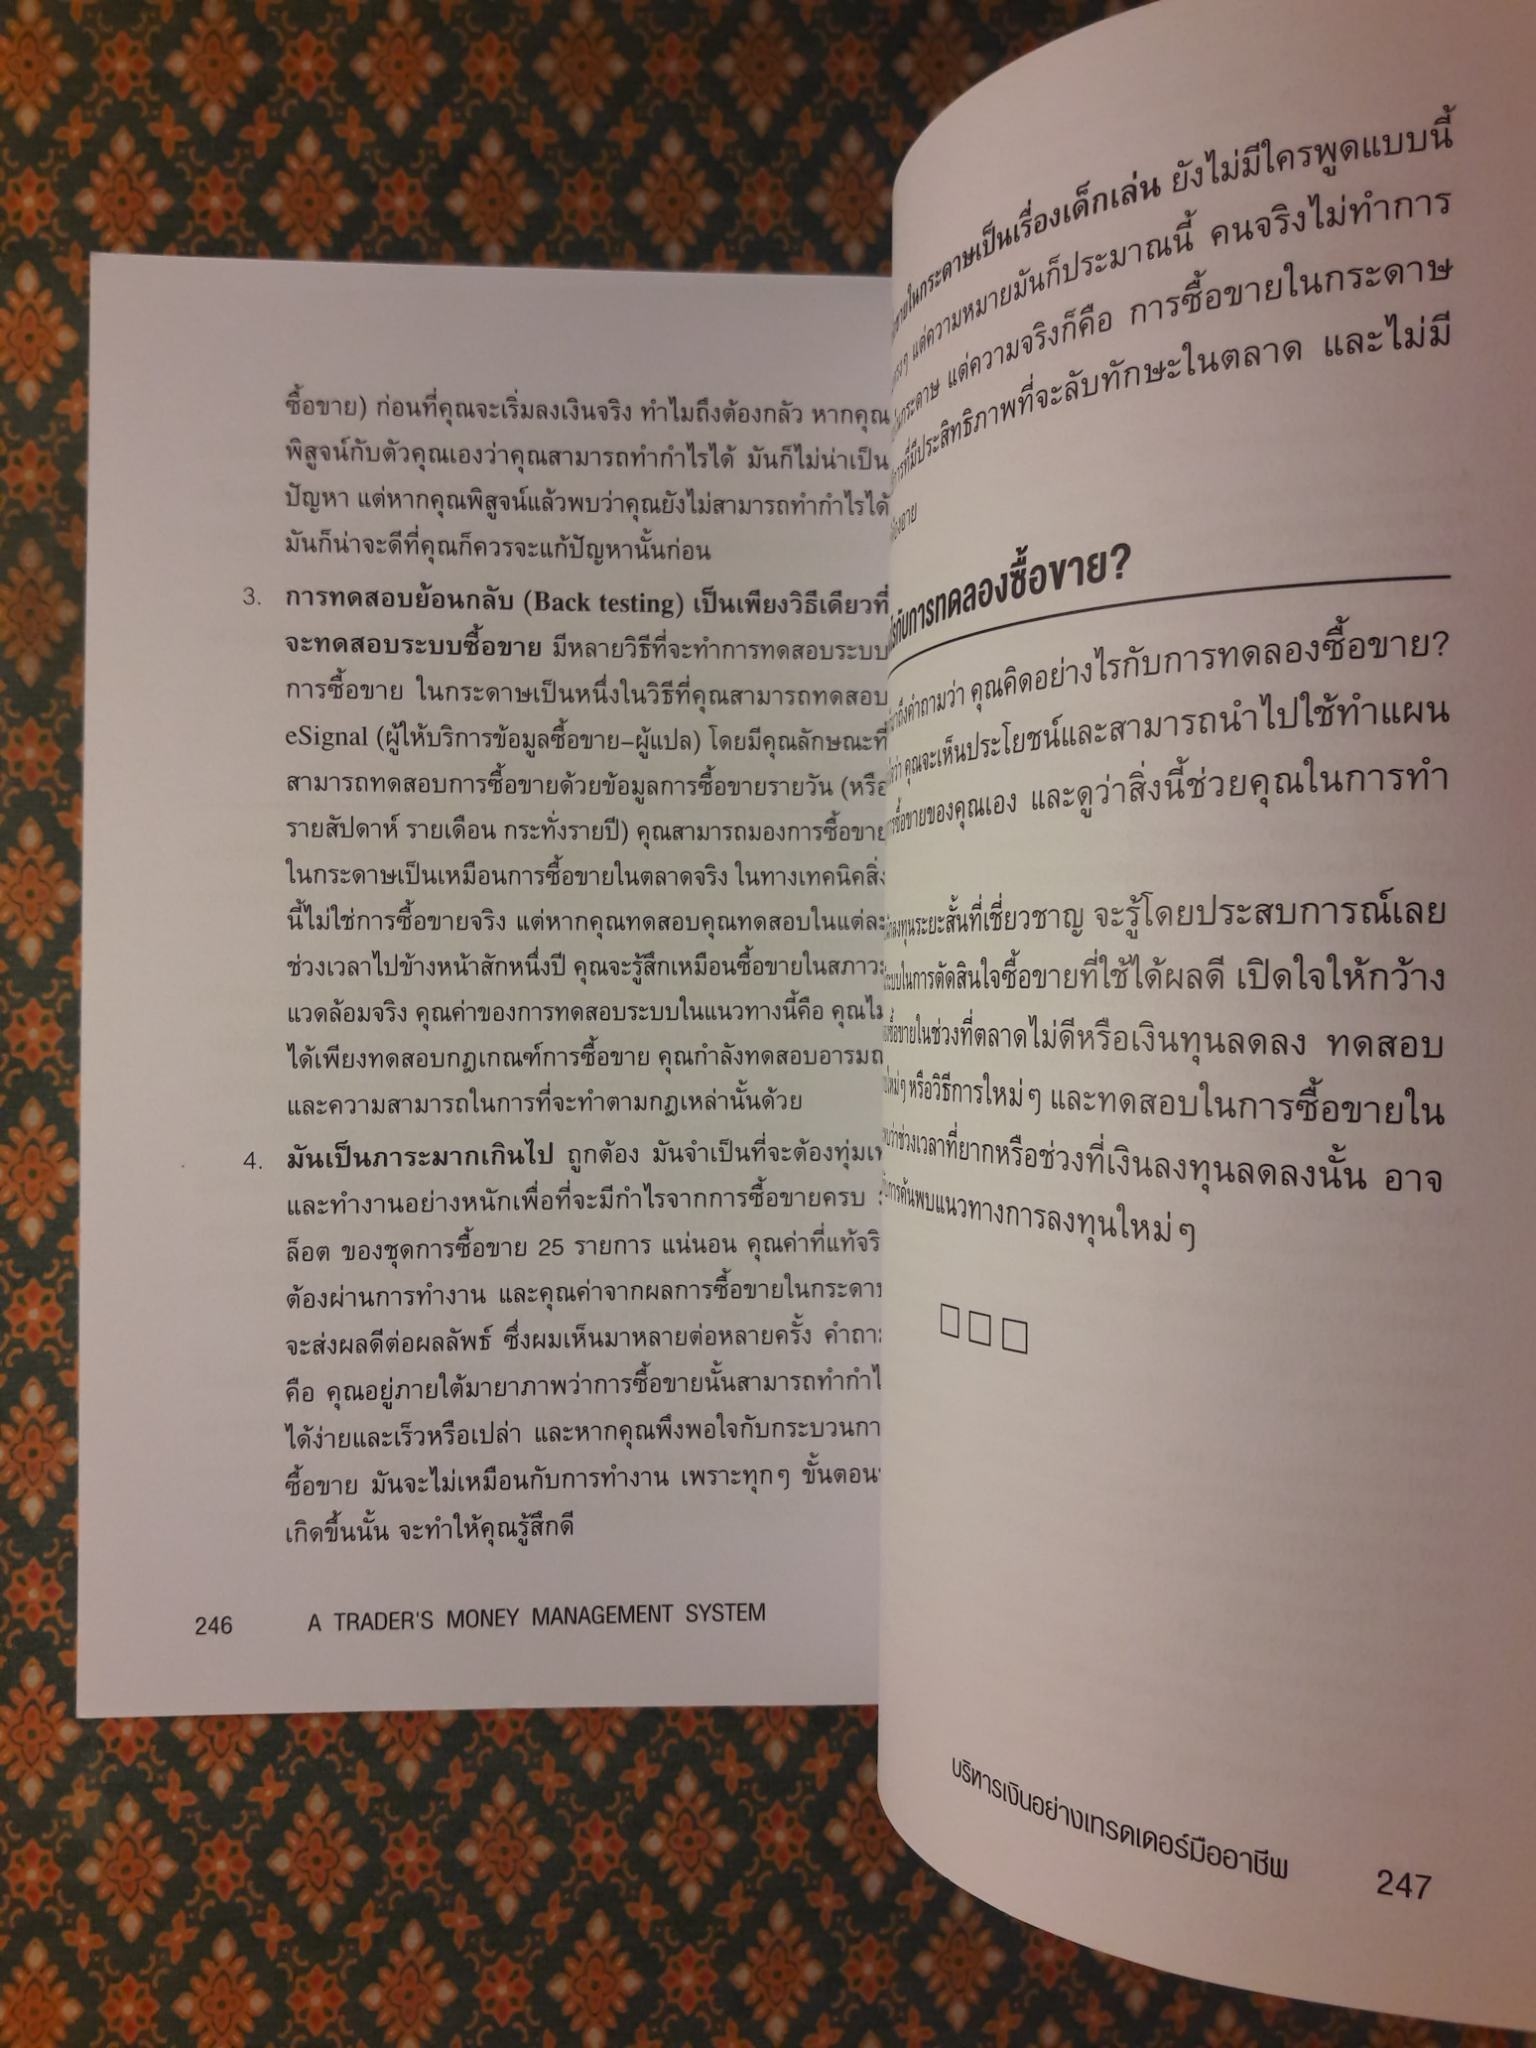 ซื้อขาย) ก่อนที่คุณจะเริ่มลงเงินจริง ทำไมถึงต้องกลัว หากคุณ
พิสูจน์กับตัวคุณเองว่าคุณสามารถทำกำไรได้ มันก็ไม่น่าเป็น
ปัญหา แต่หากคุณพิสูจน์แล้วพบว่าคุณยังไม่สามารถทำกำไรได้
มันก็น่าจะดีที่คุณก็ควรจะแก้ปัญหานั้นก่อน
3. การทดสอบย้อนกลับ (Back testing) เป็นเพียงวิธีเดียวที่
จะทดสอบระบบซื้อขาย มีหลายวิธีที่จะทำการทดสอบระบบ
การซื้อขาย ในกระดาษเป็นหนึ่งในวิธีที่คุณสามารถทดสอบ
eSignal (ผู้ให้บริการข้อมูลซื้อขาย–ผู้แปล) โดยมีคุณลักษณะที่
สามารถทดสอบการซื้อขายด้วยข้อมูลการซื้อขายรายวัน (หรือ
รายสัปดาห์ รายเดือน กระทั่งรายปี) คุณสามารถมองการซื้อขาย
ในกระดาษเป็นเหมือนการซื้อขายในตลาดจริง ในทางเทคนิคสิ่ง
นี้ไม่ใช่การซื้อขายจริง แต่หากคุณทดสอบคุณทดสอบในแต่ละ
ช่วงเวลาไปข้างหน้าสักหนึ่งปี คุณจะรู้สึกเหมือนซื้อขายในสภาวะ
แวดล้อมจริง คุณค่าของการทดสอบระบบในแนวทางนี้คือ
ได้เพียงทดสอบกฎเกณฑ์การซื้อขาย คุณกำลังทดสอบ
และความสามารถในการที่จะทำตามกฎเหล่านั้นด้วย
4. มันเป็นภาระมากเกินไป ถูกต้อง มันจำเป็นที่จะต้อง
และทำงานอย่างหนักเพื่อที่จะมีกำไรจากการซื้อขายครบ
ล็อต ของชุดการซื้อขาย 25 รายการ แน่นอน
ต้องผ่านการทำงาน และคุณค่าจากผลการซื้อขาย
จะส่งผลดีต่อผลลัพธ์ ซึ่งผมเห็นมาหลายต่อหลายครั้ง
คือ คุณอยู่ภายใต้มายาภาพว่าการซื้อขายนั้นสามารถ
ได้ง่ายและเร็วหรือเปล่า และหากคุณพึงพอใจกับ
ซื้อขาย มันจะไม่เหมือนกับการทำงาน เพราะทุกๆ
เกิดขึ้นนั้น จะทำให้คุณรู้สึกดี
246 A TRADER'S MONEY MANAGEMENT SYSTEM
ในกระดาษเป็นเรื่องเด็กเล่น ยังไม่มีใครพูดแบบนี้
แต่ความหมายมันก็ประมาณนี้ คนจริงไม่ทำการ
แต่ความจริงก็คือ การซื้อขายในกระดาษ
ที่มีประสิทธิภาพที่จะลับทักษะในตลาด และไม่มี
กับการทดลองซื้อขาย?
คุณคิดอย่างไรกับการทดลองซื้อขาย?
คุณจะเห็นประโยชน์และสามารถนำไปใช้ทำแผน
ซื้อขายของคุณเอง และดูว่าสิ่งนี้ช่วยคุณในการทำ
ระยะสั้นที่เชี่ยวชาญ จะรู้โดยประสบการณ์เลย
ในการตัดสินใจซื้อขายที่ใช้ได้ผลดี เปิดใจให้กว้าง
ในช่วงที่ตลาดไม่ดีหรือเงินทุนลดลง ทดสอบ
หรือวิธีการใหม่ๆ และทดสอบในการซื้อขายใน
ช่วงเวลาที่ยากหรือช่วงที่เงินลงทุนลดลงนั้น อาจ
การค้นพบแนวทางการลงทุนใหม่ๆ
บริหารเงินอย่างเทรดเดอร์มืออาชีพ 247